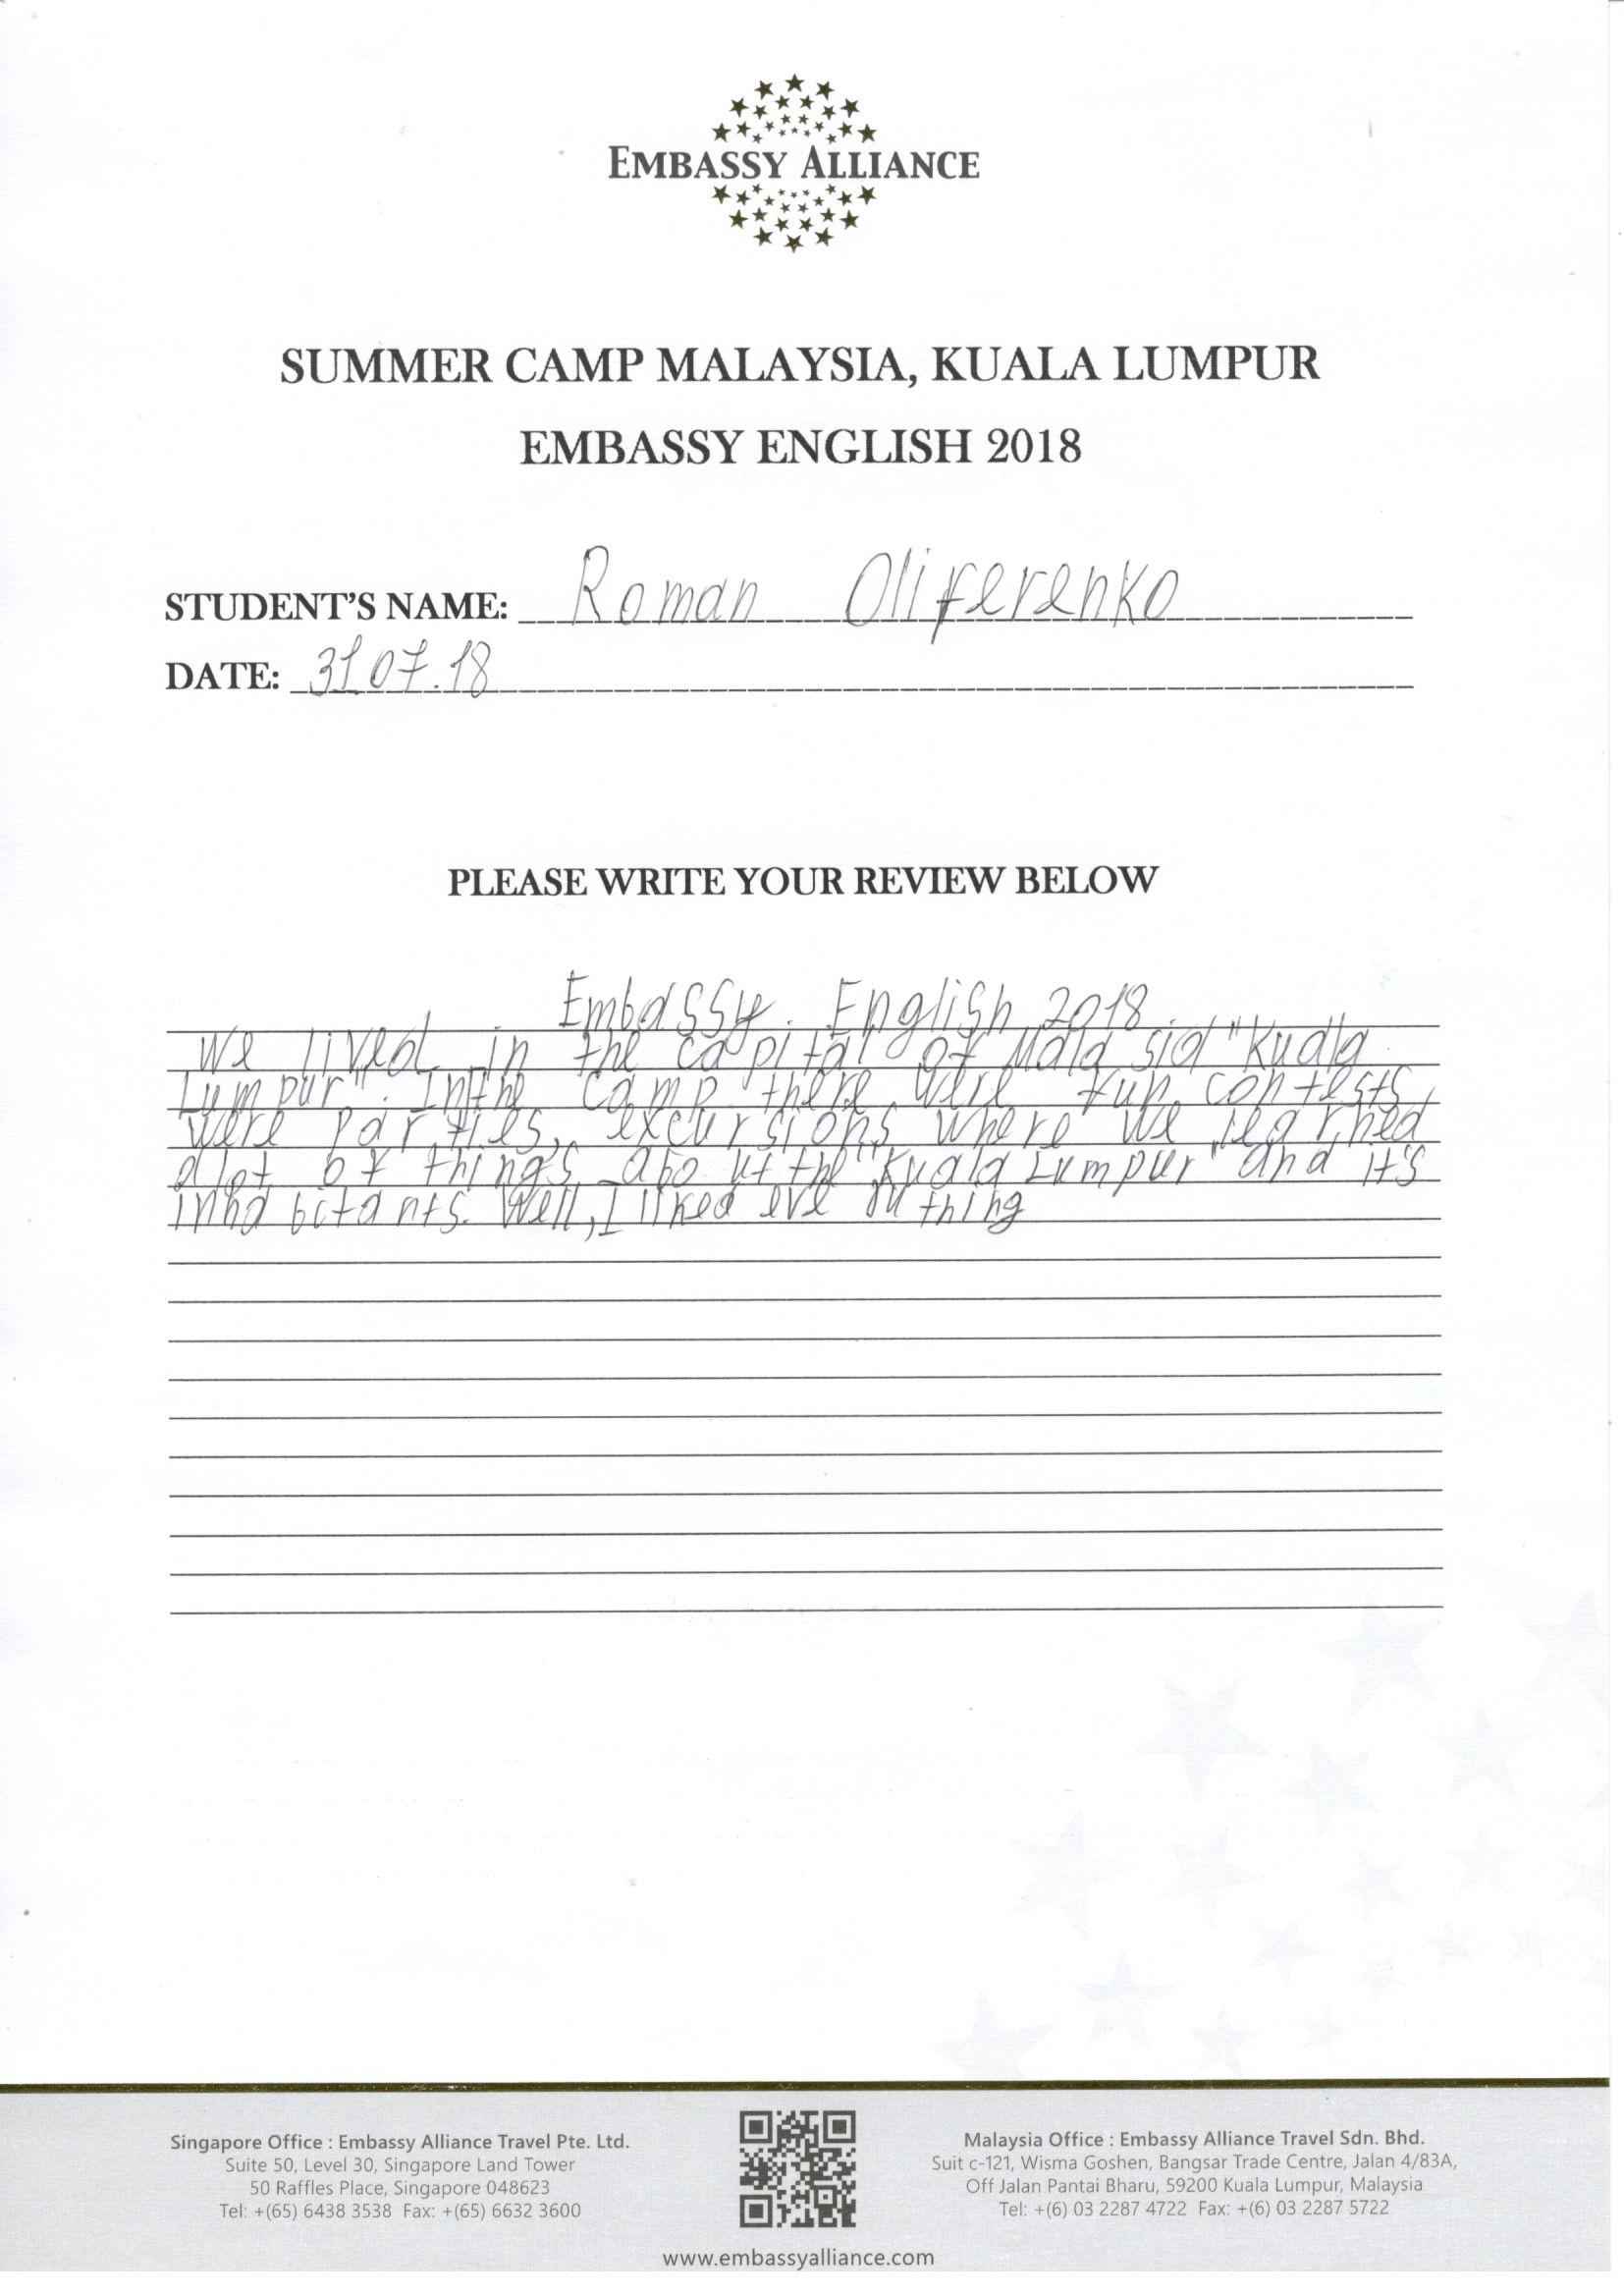 EMBASSY ALLIANCE
SUMMER CAMP MALAYSIA, KUALA LUMPUR
EMBASSY ENGLISH 2018
STUDENT'S NAME: Roman Oliferenko
DATE: 31 07.18
PLEASE WRITE YOUR REVIEW BELOW
Embassy English 2018
We lived in the capital of Malasia "Kuala
Lumpur". In the camp there were fun contests,
were parties, excursions where we learned
a lot of things about the "Kuala Lumpur" and it's
inhabitants. Well, I liked everything
Singapore Office : Embassy Alliance Travel Pte. Ltd.
Suite 50, Level 30, Singapore Land Tower
50 Raffles Place, Singapore 048623
Tel: +(65) 6438 3538 Fax: +(65) 6632 3600
Malaysia Office : Embassy Alliance Travel Sdn. Bhd.
Suit c-121, Wisma Goshen, Bangsar Trade Centre, Jalan 4/83A,
Off Jalan Pantai Bharu, 59200 Kuala Lumpur, Malaysia
Tel: +(6) 03 2287 4722 Fax: +(6) 03 2287 5722
www.embassyalliance.com